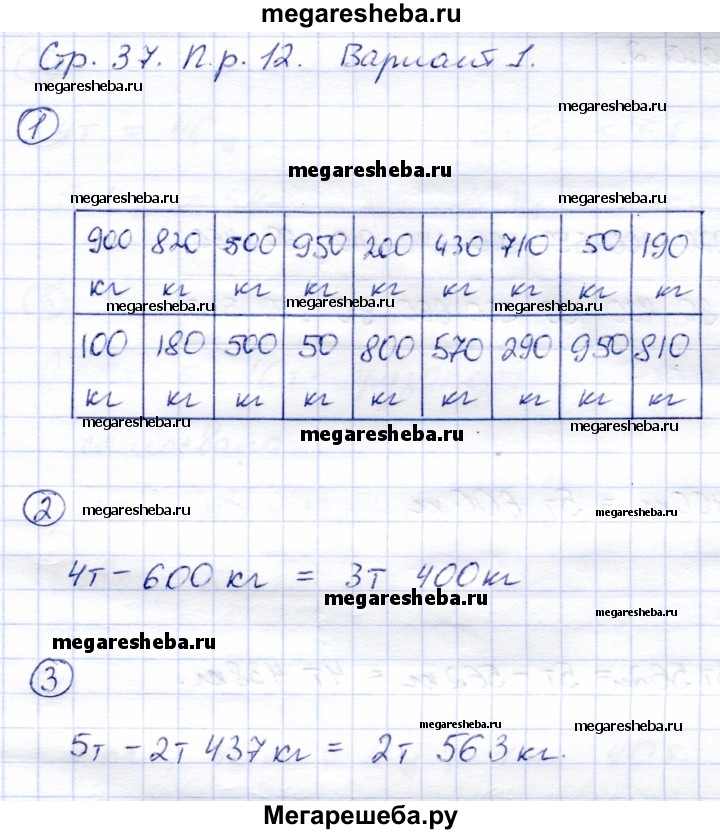 megaresheba.ru
Стр. 37. П.р. 12. Вариант 1.
megaresheba.ru
megaresheba.ru
1
megaresheba.ru
megaresheba.ru
megaresheba.ru
900 820 500 950 200 430 710 50 190
кг кг кг кг кг кг кг кг кг
megaresheba.ru megaresheba.ru megaresheba.ru
100 180 500 50 800 570 290 950 810
кг кг кг кг кг кг кг кг кг
megaresheba.ru megaresheba.ru megaresheba.ru
2 megaresheba.ru megaresheba.ru
4т - 600 кг = 3т 400кг
megaresheba.ru
megaresheba.ru
megaresheba.ru
3
megaresheba.ru megaresheba.ru
5т - 2т 437кг = 2т 563кг.
megaresheba.ru
Мегарешеба.ру